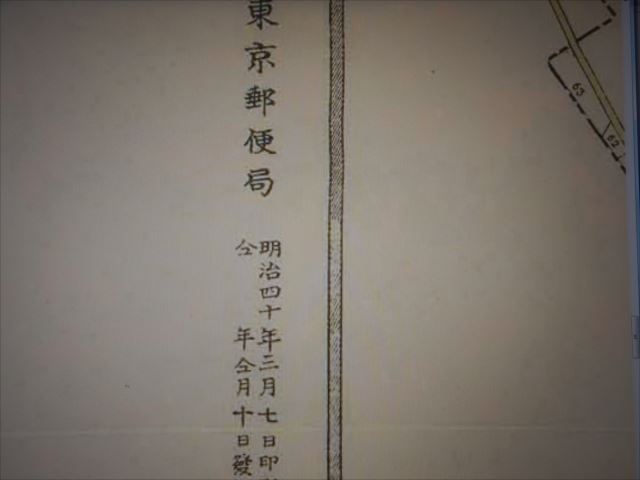 東京郵便局
明治四十年三月七日印
仝 年仝月十日發
65
62